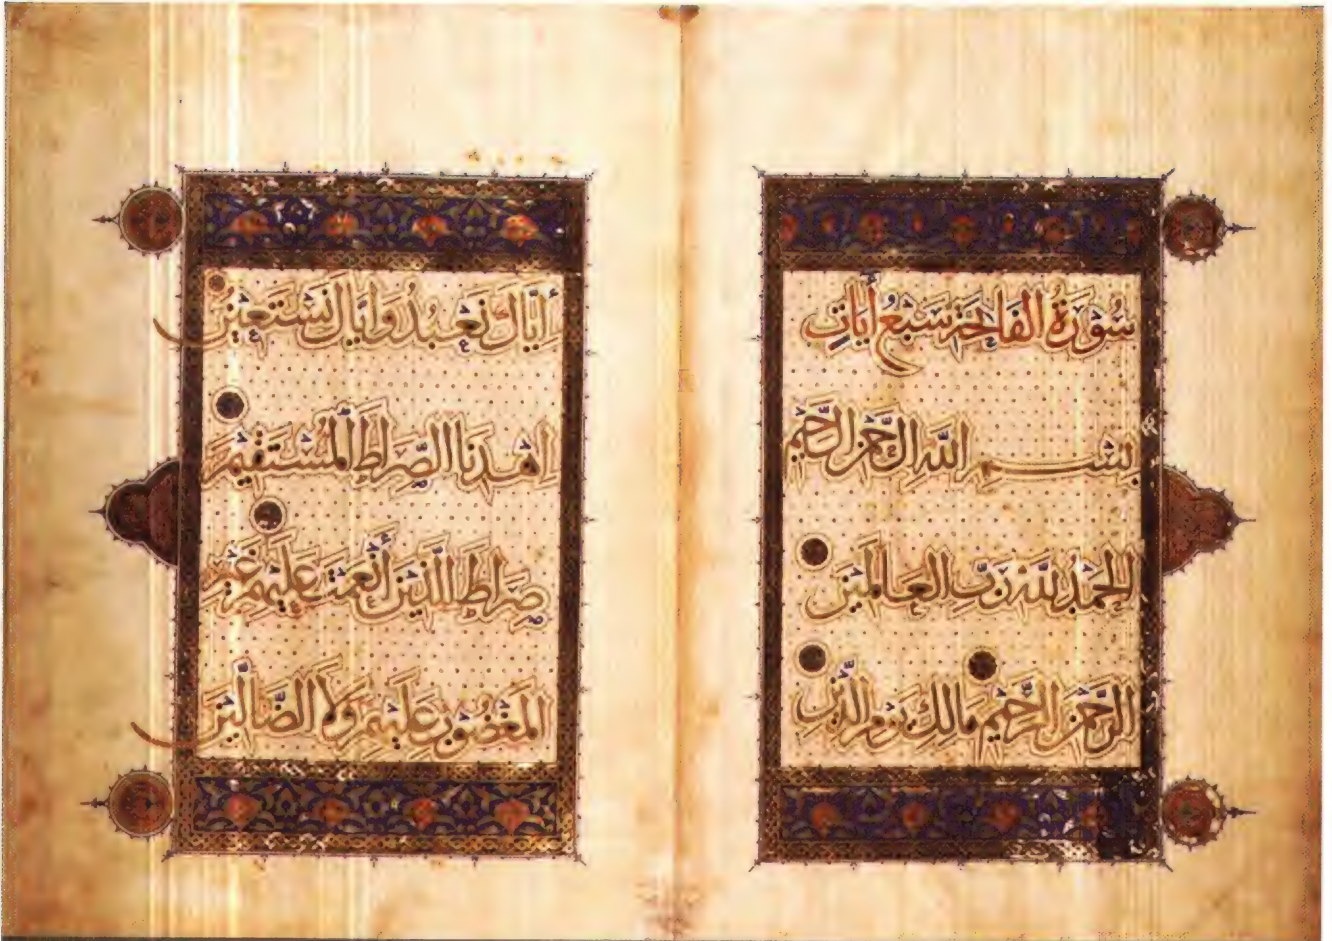 سُورَةُ الفَاتِحَةِ سَبْعُ أَيَاتٍ
بِسْمِ اللَّهِ الرَّحْمَنِ الرَّحِيمِ
الحَمْدُ لِلَّهِ رَبِّ العَالَمِينَ
الرَّحْمَنِ الرَّحِيمِ مَالِكِ يَوْمِ الدِّينِ
أيَّاكَ نَعْبُدُ وَايَّاكَ نَسْتَعِينُ
اهْدِنَا الصِّرَاطَ المُسْتَقِيمَ
صِرَاطَ الَّذِينَ أَنْعَمْتَ عَلَيْهِمْ غَيْرِ
المَغْضُوبِ عَلَيْهِمْ وَلَا الضَّالِّينَ